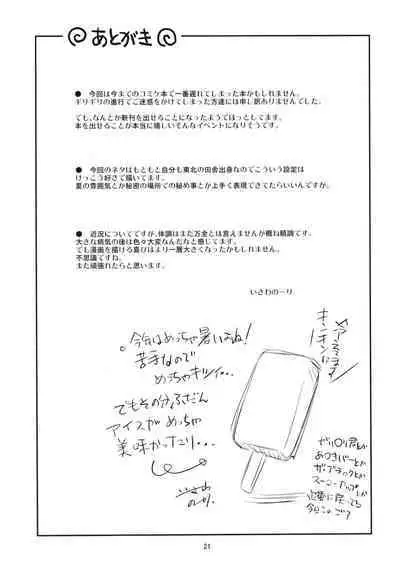 あとがき
● 今回は今までのコミケ本で一番遅れてしまった本かもしれません。
ギリギリの進行でご迷惑をかけてしまった方達には申し訳ありませんでした。
でも、なんとか新刊を出せることになったようでほっとしてます。
本を出せることが本当に嬉しいそんなイベントになりそうです。
● 今回のネタはもともと自分も東北の田舎出身なのでこういう設定は
けっこう好きで描いてます。
夏の雰囲気とか秘密の場所での秘め事とか上手く表現できてたらいいんですが。
● 近況についてですが、体調はまだ万全とは言えませんが概ね順調です。
大きな病気の後は色々大変なんだなと感じてます。
でも漫画を描ける喜びはより一層大きくなったかもしれません。
不思議ですね。
また頑張れたらと思います。
いさわのーり
今年はめっちゃ暑いよね!
苦手なので
めっちゃキツイ・・・
でもその分ふだん
アイスがめっちゃ
美味かったり・・・
いさわ
のーり
キンキンに
ガリ○リ君とか
あずきバーとか
ザ・ブラックとか
スーパーカップとか
21